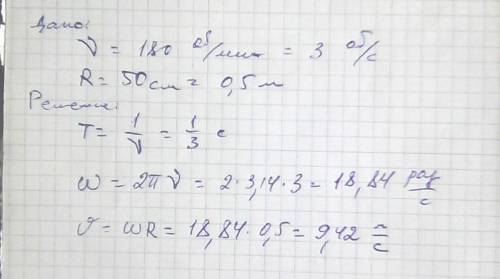 Дано:
ν = 180 об/мин = 3 об/с
R = 50 см = 0,5 м
Решение:
T = 1/ν = 1/3 с
ω = 2πν = 2·3,14·3 = 18,84 рад/с
υ = ωR = 18,84·0,5 = 9,42 м/с